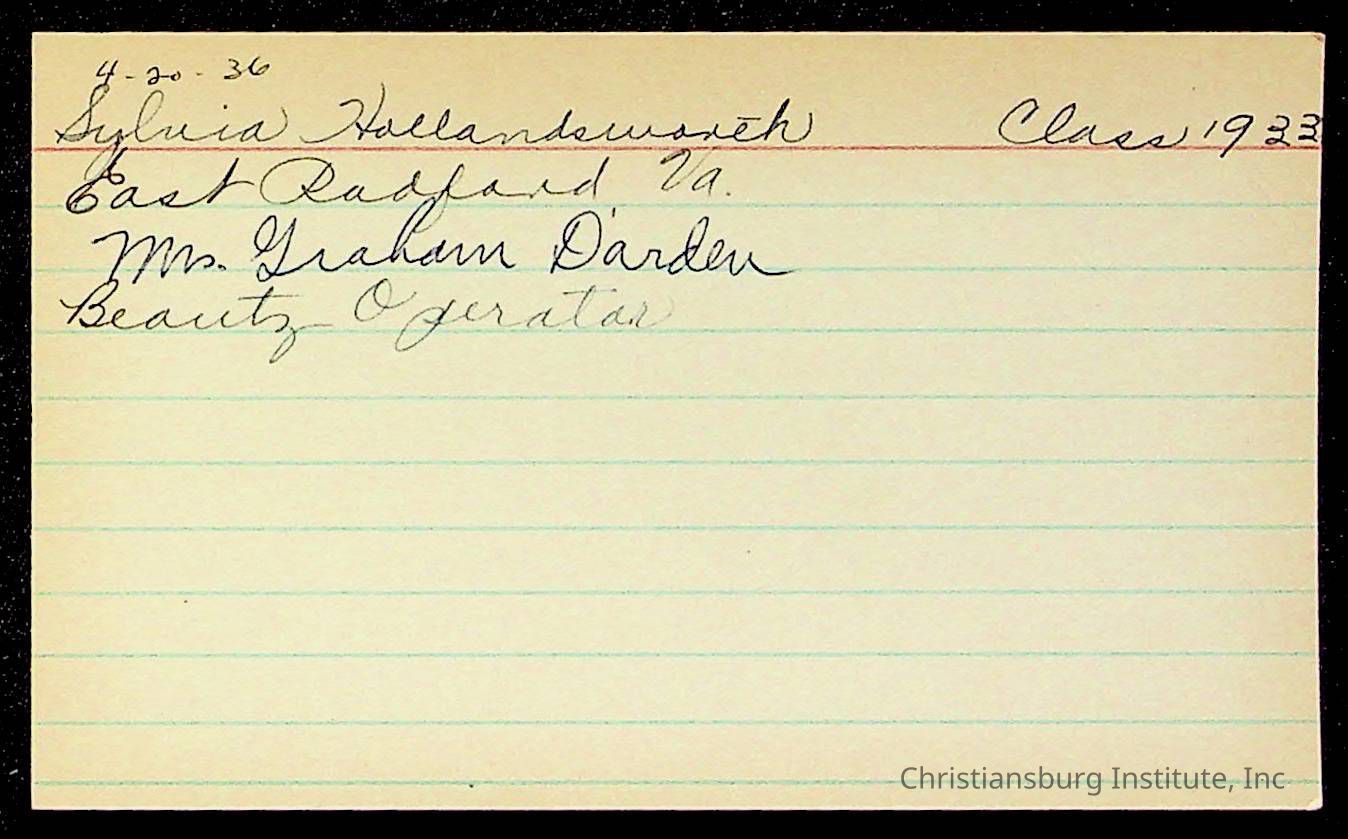 4-20-36
Sylvia Hollandsworth Class 1933
East Radford Va.
Mrs. Graham D'arden
Beauty Operator
Christiansburg Institute, Inc